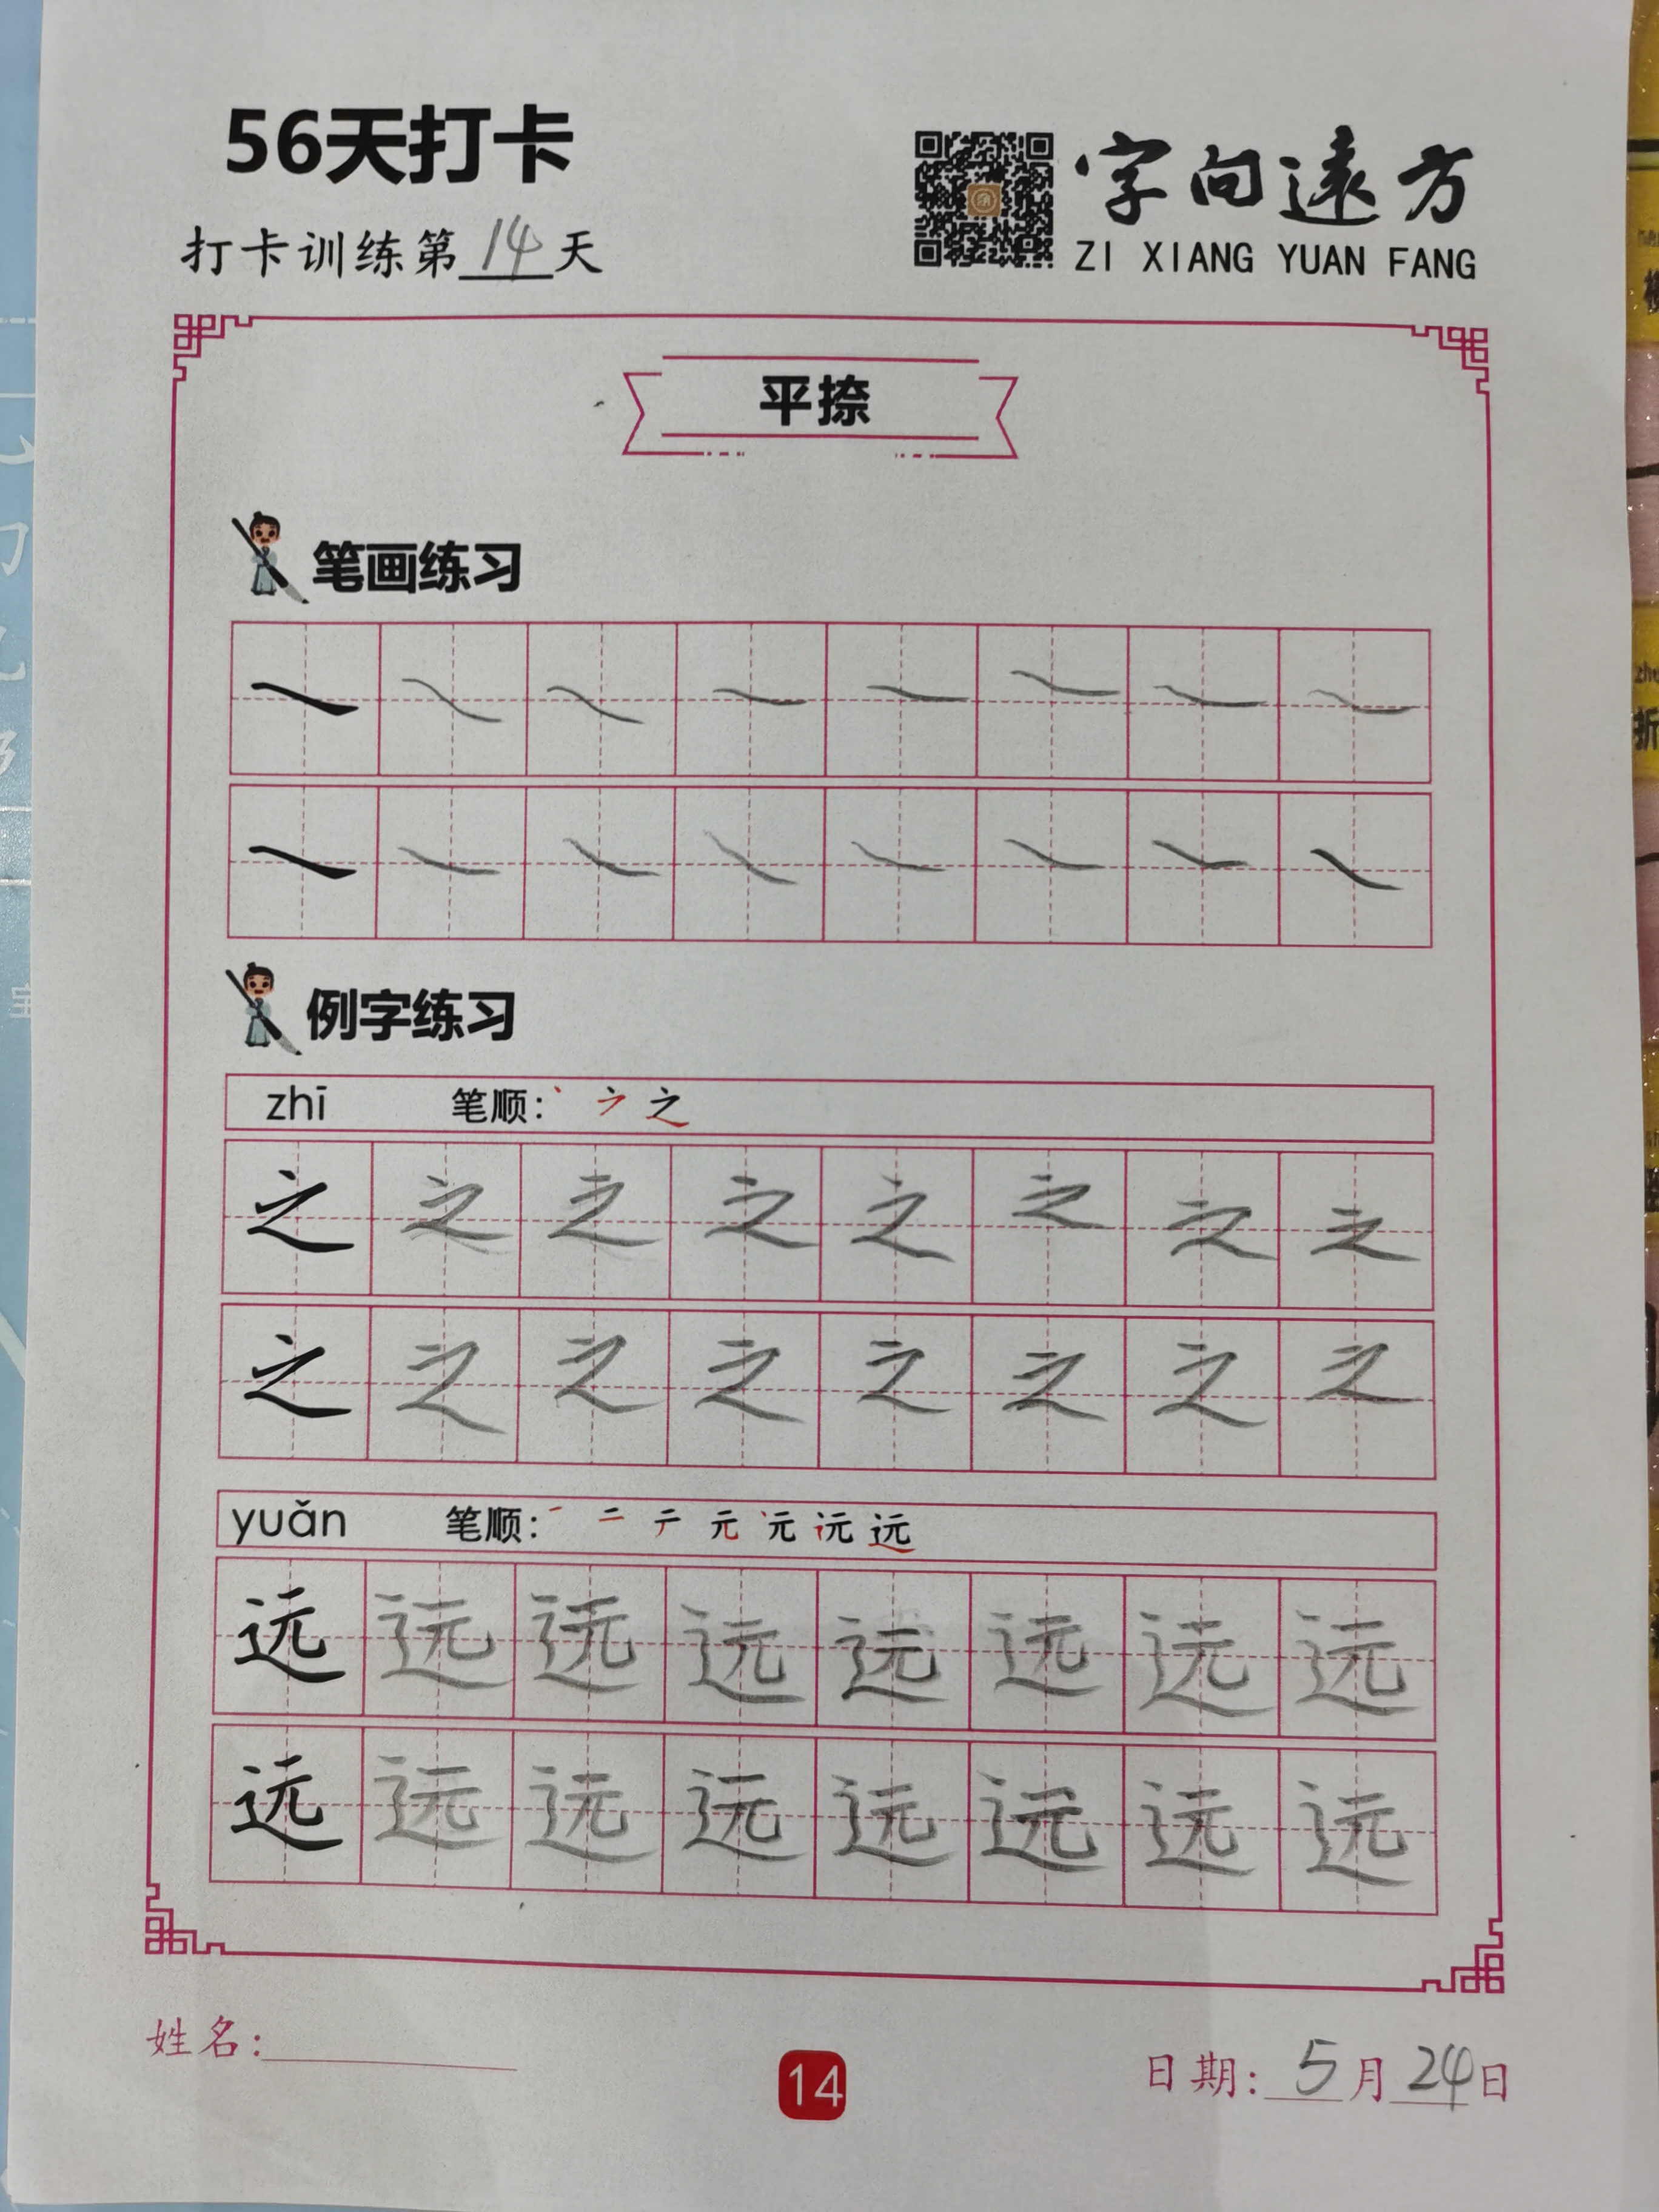 56天打卡
打卡训练第14天
字向遠方
ZI XIANG YUAN FANG
平捺
笔画练习
例字练习
zhī 笔顺: 丶 ㇇ 之
之 之 之 之 之 之 之 之
之 之 之 之 之 之 之 之
yuǎn 笔顺: 一 二 テ 元 远
远 远 远 远 远 远 远 远
远 远 远 远 远 远 远 远
姓名:
14
日期: 5月24日